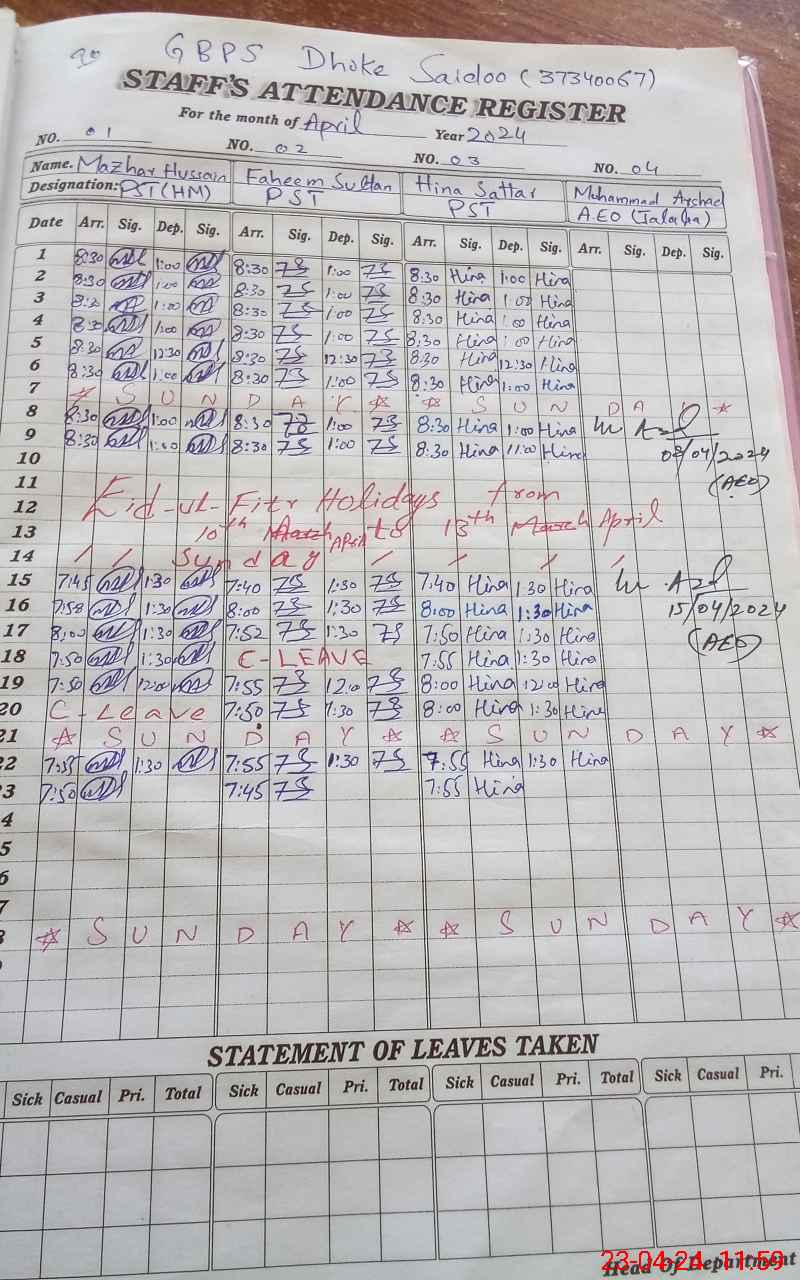 GBPS Dhoke Saidoo (37340067)
STAFF'S ATTENDANCE REGISTER
For the month of April Year 2024
NO. 01 NO. 02 NO. 03 NO. 04
Name. Mazhar Hussain Faheem Sultan Hina Sattar Muhammad Arshad
Designation: PST (HM) PST PST A.EO (Jalalia)
Date Arr. Sig. Dep. Sig. Arr. Sig. Dep. Sig. Arr. Sig. Dep. Sig. Arr. Sig. Dep. Sig.
1 8:30 1:00 8:30 1:00 8:30 Hina 1:00 Hina
2 8:30 1:00 8:30 1:00 8:30 Hina 1:00 Hina
3 8:30 1:00 8:30 1:00 8:30 Hina 1:00 Hina
4 8:30 1:00 8:30 1:00 8:30 Hina 1:00 Hina
5 8:30 12:30 8:30 12:30 8:30 Hina 12:30 Hina
6 8:30 1:00 8:30 1:00 8:30 Hina 1:00 Hina
7 S U N D A Y S U N D A Y
8 8:30 1:00 8:30 1:00 8:30 Hina 1:00 Hina
9 8:30 1:00 8:30 1:00 8:30 Hina 11:00 Hina 08/04/2024
10 (AEO)
11 Eid-ul-Fitr Holidays from
12 10th March April to 13th March April
13
14 Sunday
15 7:45 1:30 7:40 1:30 7:40 Hina 1:30 Hina
16 7:58 1:30 8:00 1:30 8:00 Hina 1:30 Hina 15/04/2024
17 8:00 1:30 7:52 1:30 7:50 Hina 1:30 Hina (AEO)
18 7:50 1:30 C-LEAVE 7:55 Hina 1:30 Hina
19 7:50 12:00 7:55 12:00 8:00 Hina 12:00 Hina
20 C-Leave 7:50 1:30 8:00 Hina 1:30 Hina
21 S U N D A Y S U N D A Y
22 7:55 1:30 7:55 1:30 7:55 Hina 1:30 Hina
3 7:50 7:45 7:55 Hina
4
5
6
7
8 S U N D A Y S U N D A Y
STATEMENT OF LEAVES TAKEN
Sick Casual Pri. Total Sick Casual Pri. Total Sick Casual Pri. Total Sick Casual Pri.
Head Of Department
23-04-24 11:59